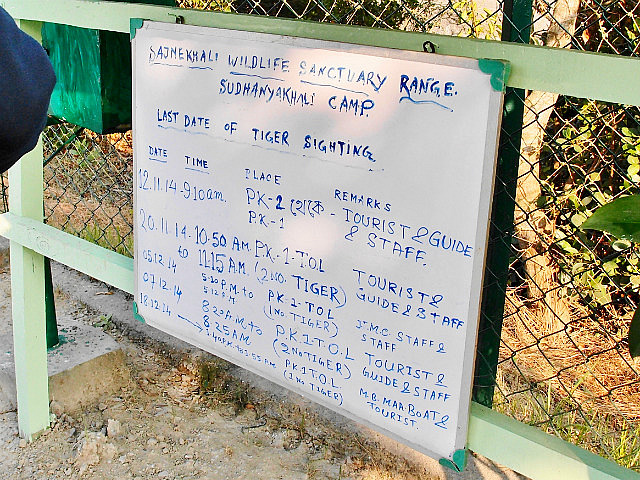 SAJNEKHALI WILDLIFE SANCTUARY RANGE.
SUDHANYAKHALI CAMP.
LAST DATE OF TIGER SIGHTING
DATE TIME PLACE REMARKS
12.11.14-9.10am. PK-2 থেকে - TOURIST & GUIDE
PK-1 & STAFF.
20.11.14-10.50 AM. P.K-1-TOL TOURIST &
to 11.15 A.M. (2 NO. TIGER) GUIDE & STAFF
05.12.14 PK-1-TOL J.F.M.C. STAFF &
(1 NO TIGER) STAFF
07.12.14 8.20 A.M. to P.K.1-T.O.L TOURIST &
8.25 AM (2 NO TIGER) GUIDE & STAFF
18.12.14 PK1T.O.L M.B. MAA BOAT &
(1 NO TIGER) TOURIST.